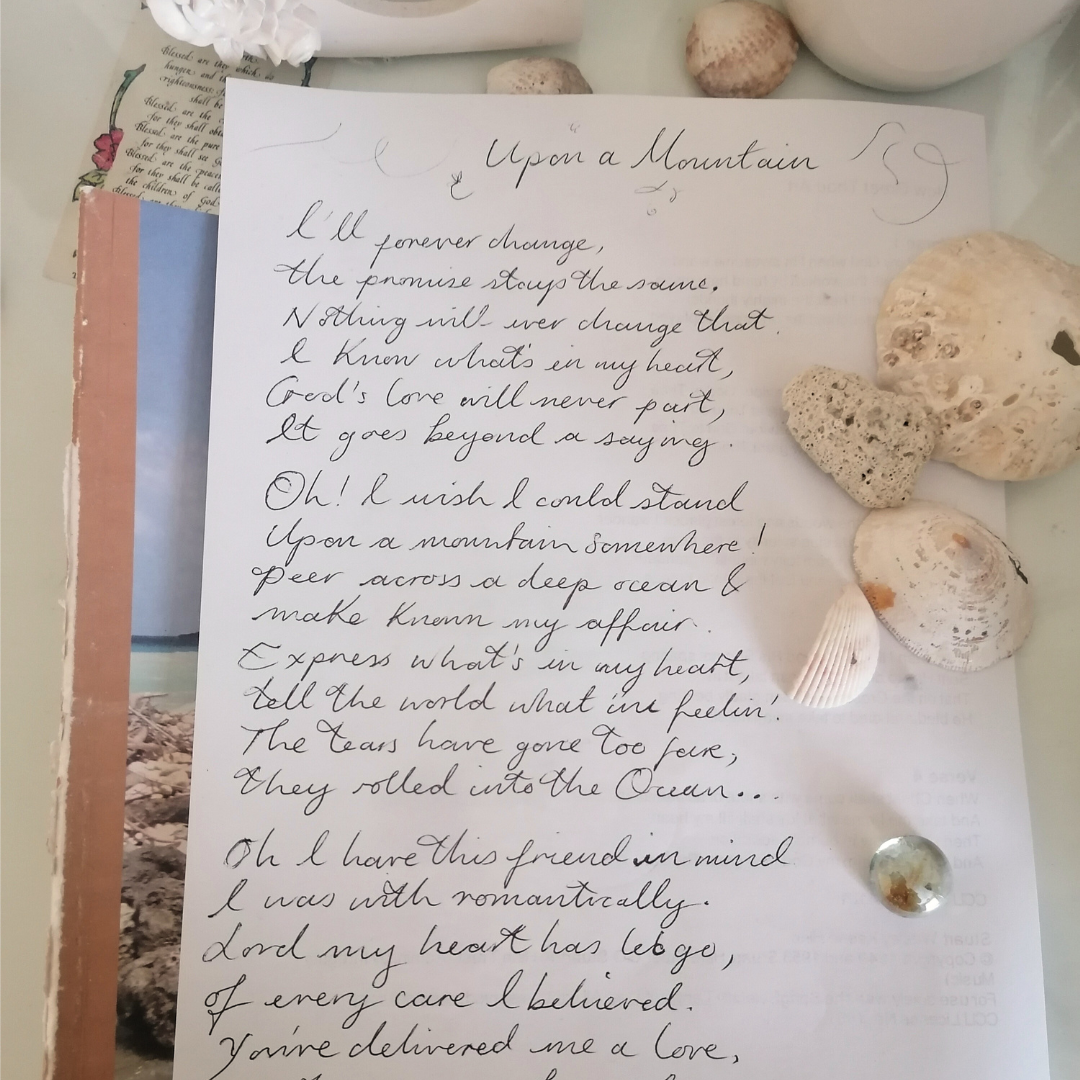 Blessed are they which do
hunger and th
righteousness:
shall be
Blessed are the
for they shall obt
Blessed are the pure
for they shall see G
Blessed are the peace
for they shall be calle
the children of God
Upon a Mountain
I'll forever change,
the promise stays the same.
Nothing will ever change that.
I know what's in my heart,
God's love will never part,
It goes beyond a saying.
Oh! I wish I could stand
Upon a mountain somewhere!
Peer across a deep ocean &
make known my affair.
Express what's in my heart,
tell the world what im feelin'.
The tears have gone too far,
they rolled into the Ocean...
Oh I have this friend in mind
I was with romantically.
Lord my heart has let go,
of every care I believed.
You've delivered me a love,